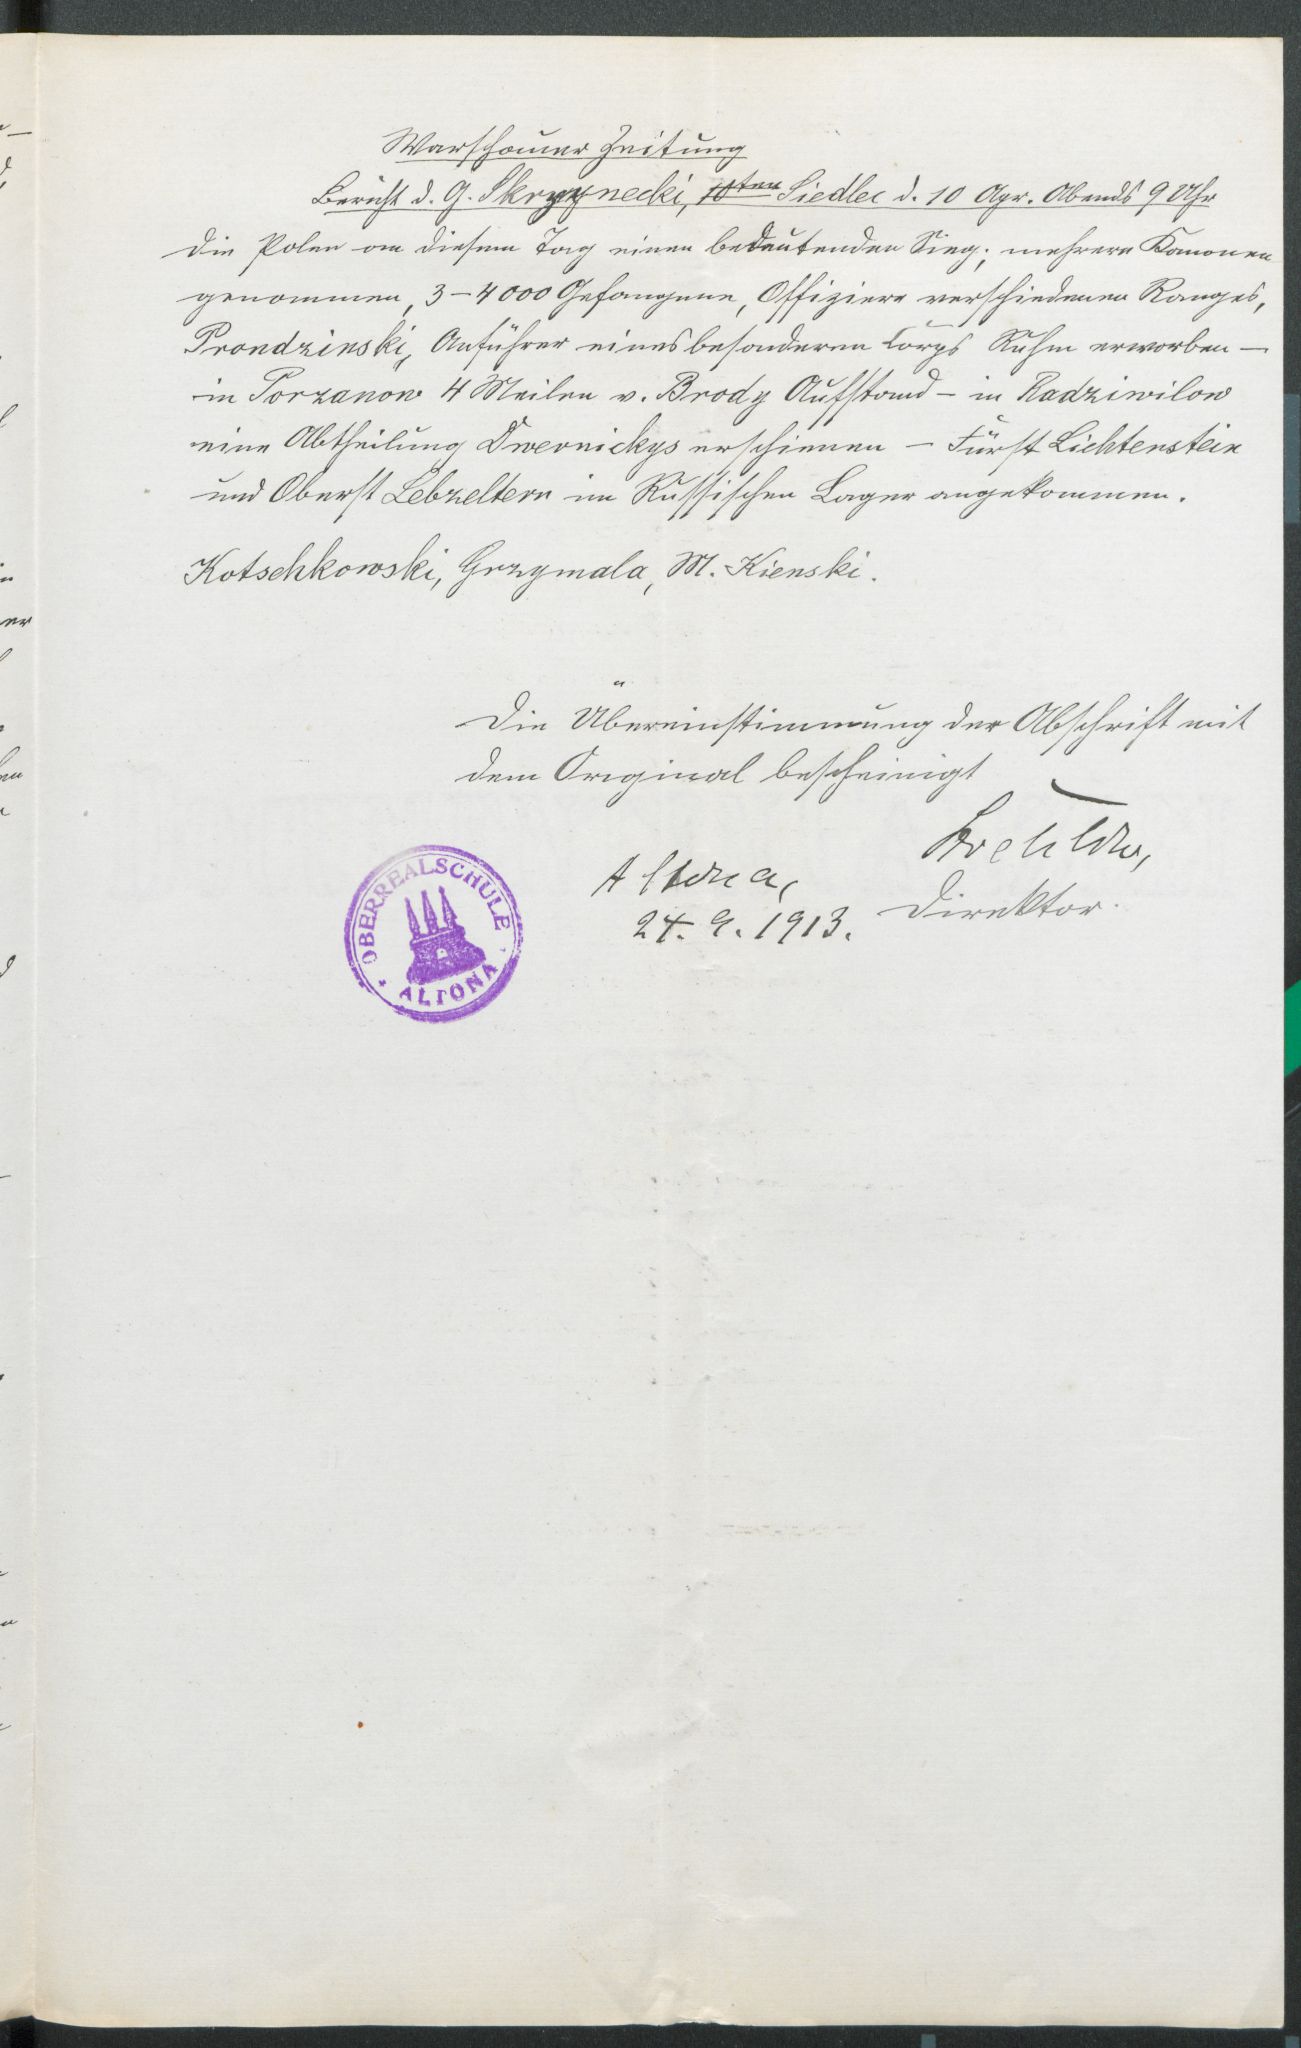 Warschauer Zeitung
Bericht d. G. Skrzynecki, 10ten Siedlec d. 10 Apr. Abends 9 Uhr
Die Polen an diesem Tag einen bedeutenden Sieg; mehrere Kanonen
genommen, 3–4000 Gefangene, Offiziere verschiedenen Ranges,
Prondzinski, Anführer eines besonderen Corps Ruhm erworben –
in Porzanow 4 Meilen v. Brody Aufstand – in Radziwilow
eine Abtheilung Dwernickys erschienen – Fürst Lichtenstein
und Oberst Lebzeltern im Russischen Lager angekommen.
Kotschkowski, Grzymala, M. Kienski.
Die Übereinstimmung der Abschrift mit
dem Original bescheinigt
Altona,
24. 9. 1913.
Direktor.
OBERREALSCHULE
ALTONA